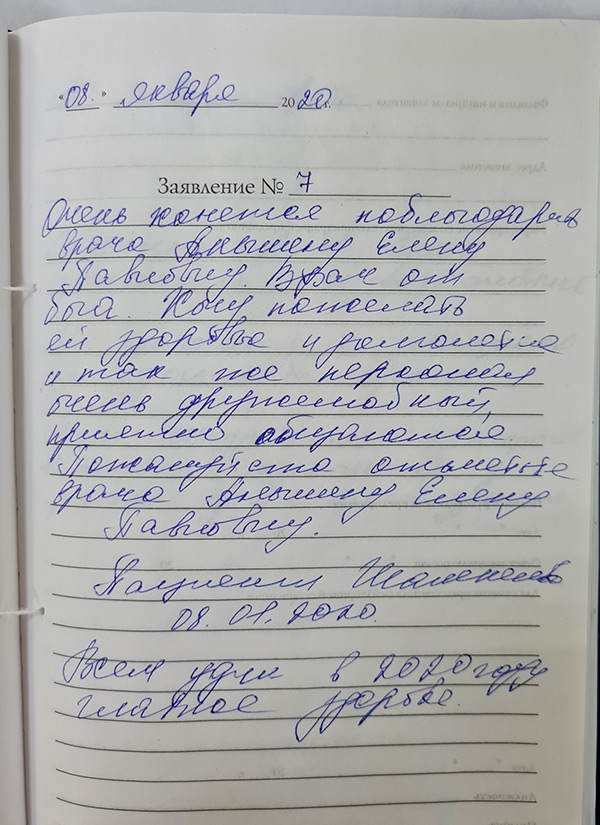 "08." января 2020г.
Заявление № 7
Очень хочется поблагодарить
врача Анышену Елену
Павловну. Врач от
бога. Хочу пожелать
ей здоровье и долголетие
и так же персонал
очень дружелюбный,
приятно общаться.
Пожалуйста отметьте
врача Анышену Елену
Павловну.
Пациент
08.01.2020.
Всем удачи в 2020 году
главное здоровье.